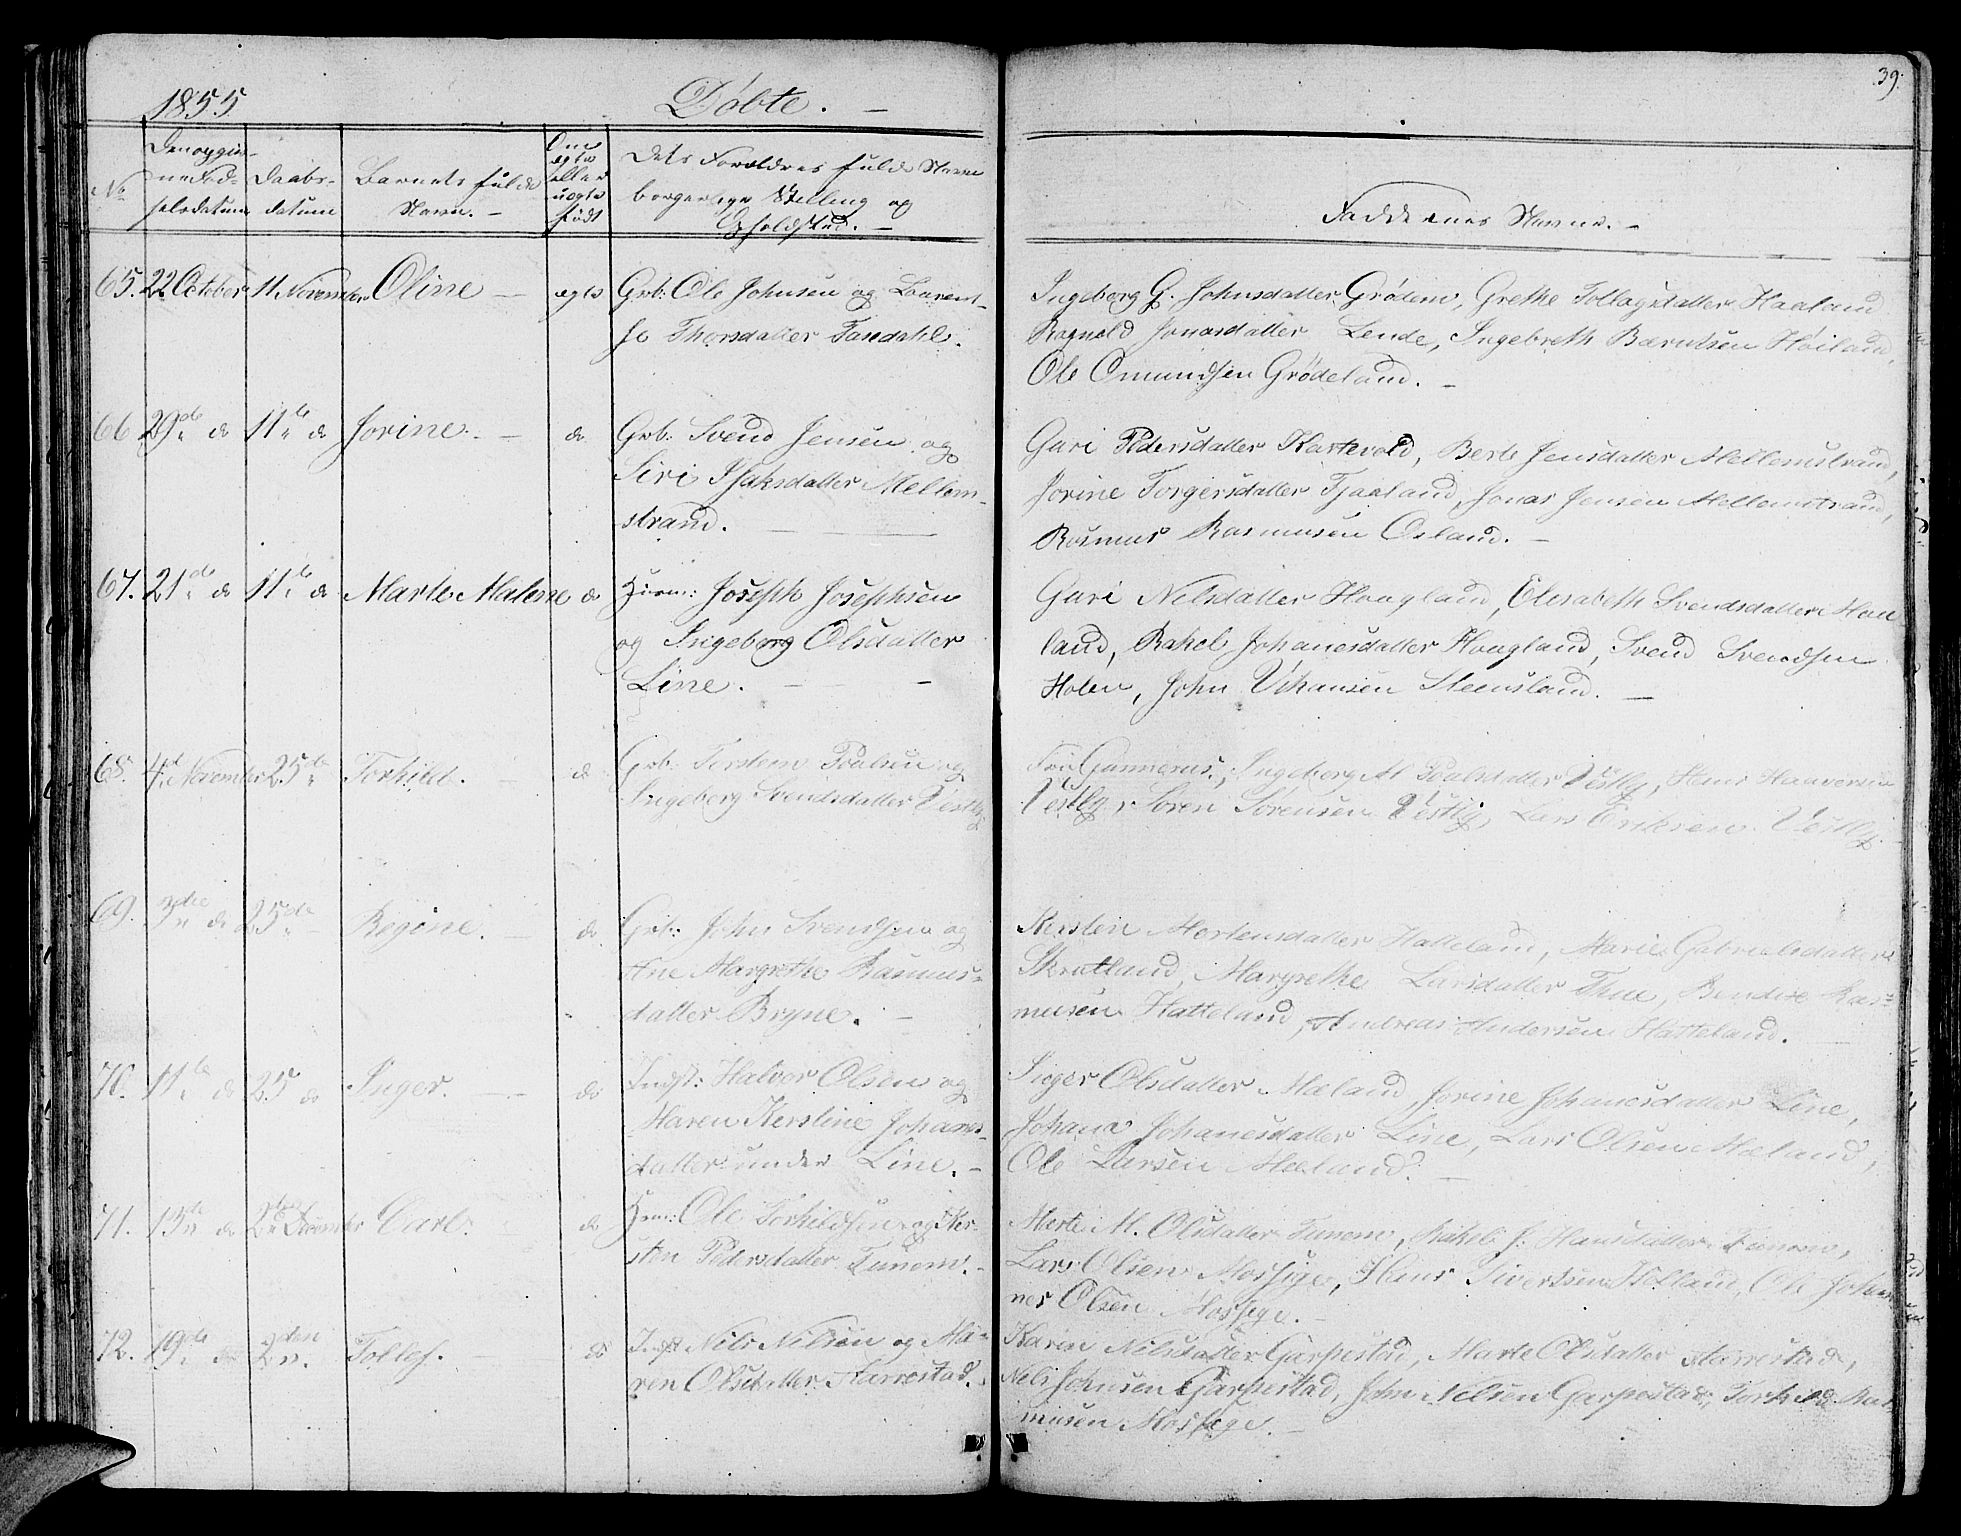 39.
1855
Døbte. —
No
Den opgivne Fødselsdatum
Daabsdatum
Barnets fulde Navn. —
Om ægte eller uægte født
Dets Forældres fulde Navne
borgerlige Stilling og
Opholdsted. —
Faddernes Navne. —
65. 22 October 11 November Oline — ægte Grb: Ole Johnsen og Laurent-
se Thorsdatter Tasedahl.
Ingeborg G. Johnsdatter Grødem, Grethe Tollagsdatter Haaland
Ragnald Jonasdatter Lende, Ingebreth Berntsen Høiland,
Ole Omundsen Grødeland. —
66 29de do 11te do Jorine. — do. Grb: Svend Jensen og
Siri Isaksdatter Mellom-
strand. —
Guri Pedersdatter Hartevold, Berte Jensdatter Mellemstrand,
Jorine Torgersdatter Tjaaland, Jonas Jensen Mellemstrand,
Rasmus Rasmusen Osland. —
67. 21de do 11te do Marte Malene do Huusm: Joseph Josephsen
og Ingeborg Olsdatter
Line. — —
Guri Nilsdatter Haagland, Elisabeth Svendsdatter Haa
land, Rakel Johanesdatter Haagland, Svend Svendsen
Holen, John Vihansen Steensland. —
68. 4de November 25de Torkild. — do Grb: Torstein Poulsen og
Ingeborg Svendsdatter Vestly
Fru Gunnerus, Ingeborg M Poulsdatter Vestly, Hans Haaversen
Vestly, Søren Sørensen Vestly, Lars Eriksen Vestly.
69. 3die do 25de Regine. — do. Grb: John Svendsen og
Ane Margrethe Rasmus-
datter Bryne. —
Kirsten Mortensdatter Hatteland, Marie Gabrielsdatter
Skrutland, Margrethe Larsdatter Thue, Bendix Ras-
musen Hatteland, Andreas Andersen Hatteland.
70. 11te do 25 do Inger. — do Indst: Halvor Olsen og
Maren Kerstine Johanes-
datter under Line. —
Siger Olsdatter Mæland, Jorine Johanesdatter Line,
Johana Johanesdatter Line, Lars Olsen Mæland,
Ole Larsen Mæland. —
71. 13de do 2den December Carl. do Hsm: Ole Torkildsen og Ker-
sten Pedersdatter Tunem. —
Marte M. Olsdatter Tunem, Rakel J. Hansdatter Tunem,
Lars Olsen Mossige, Hans Sivertsen Holland, Ole Johan-
nes Olsen Mossige. —
72. 19de do 2den Tollef. — do Indst Nils Nilsen og Ma-
ren Olsdatter Aarrestad.
Karen Nilsdatter Garpestad, Marte Olsdatter Aarrestad,
Nils Johnsen Garpestad, John Nilsen Garpestad, Torkild Ras-
musen Mossige. —